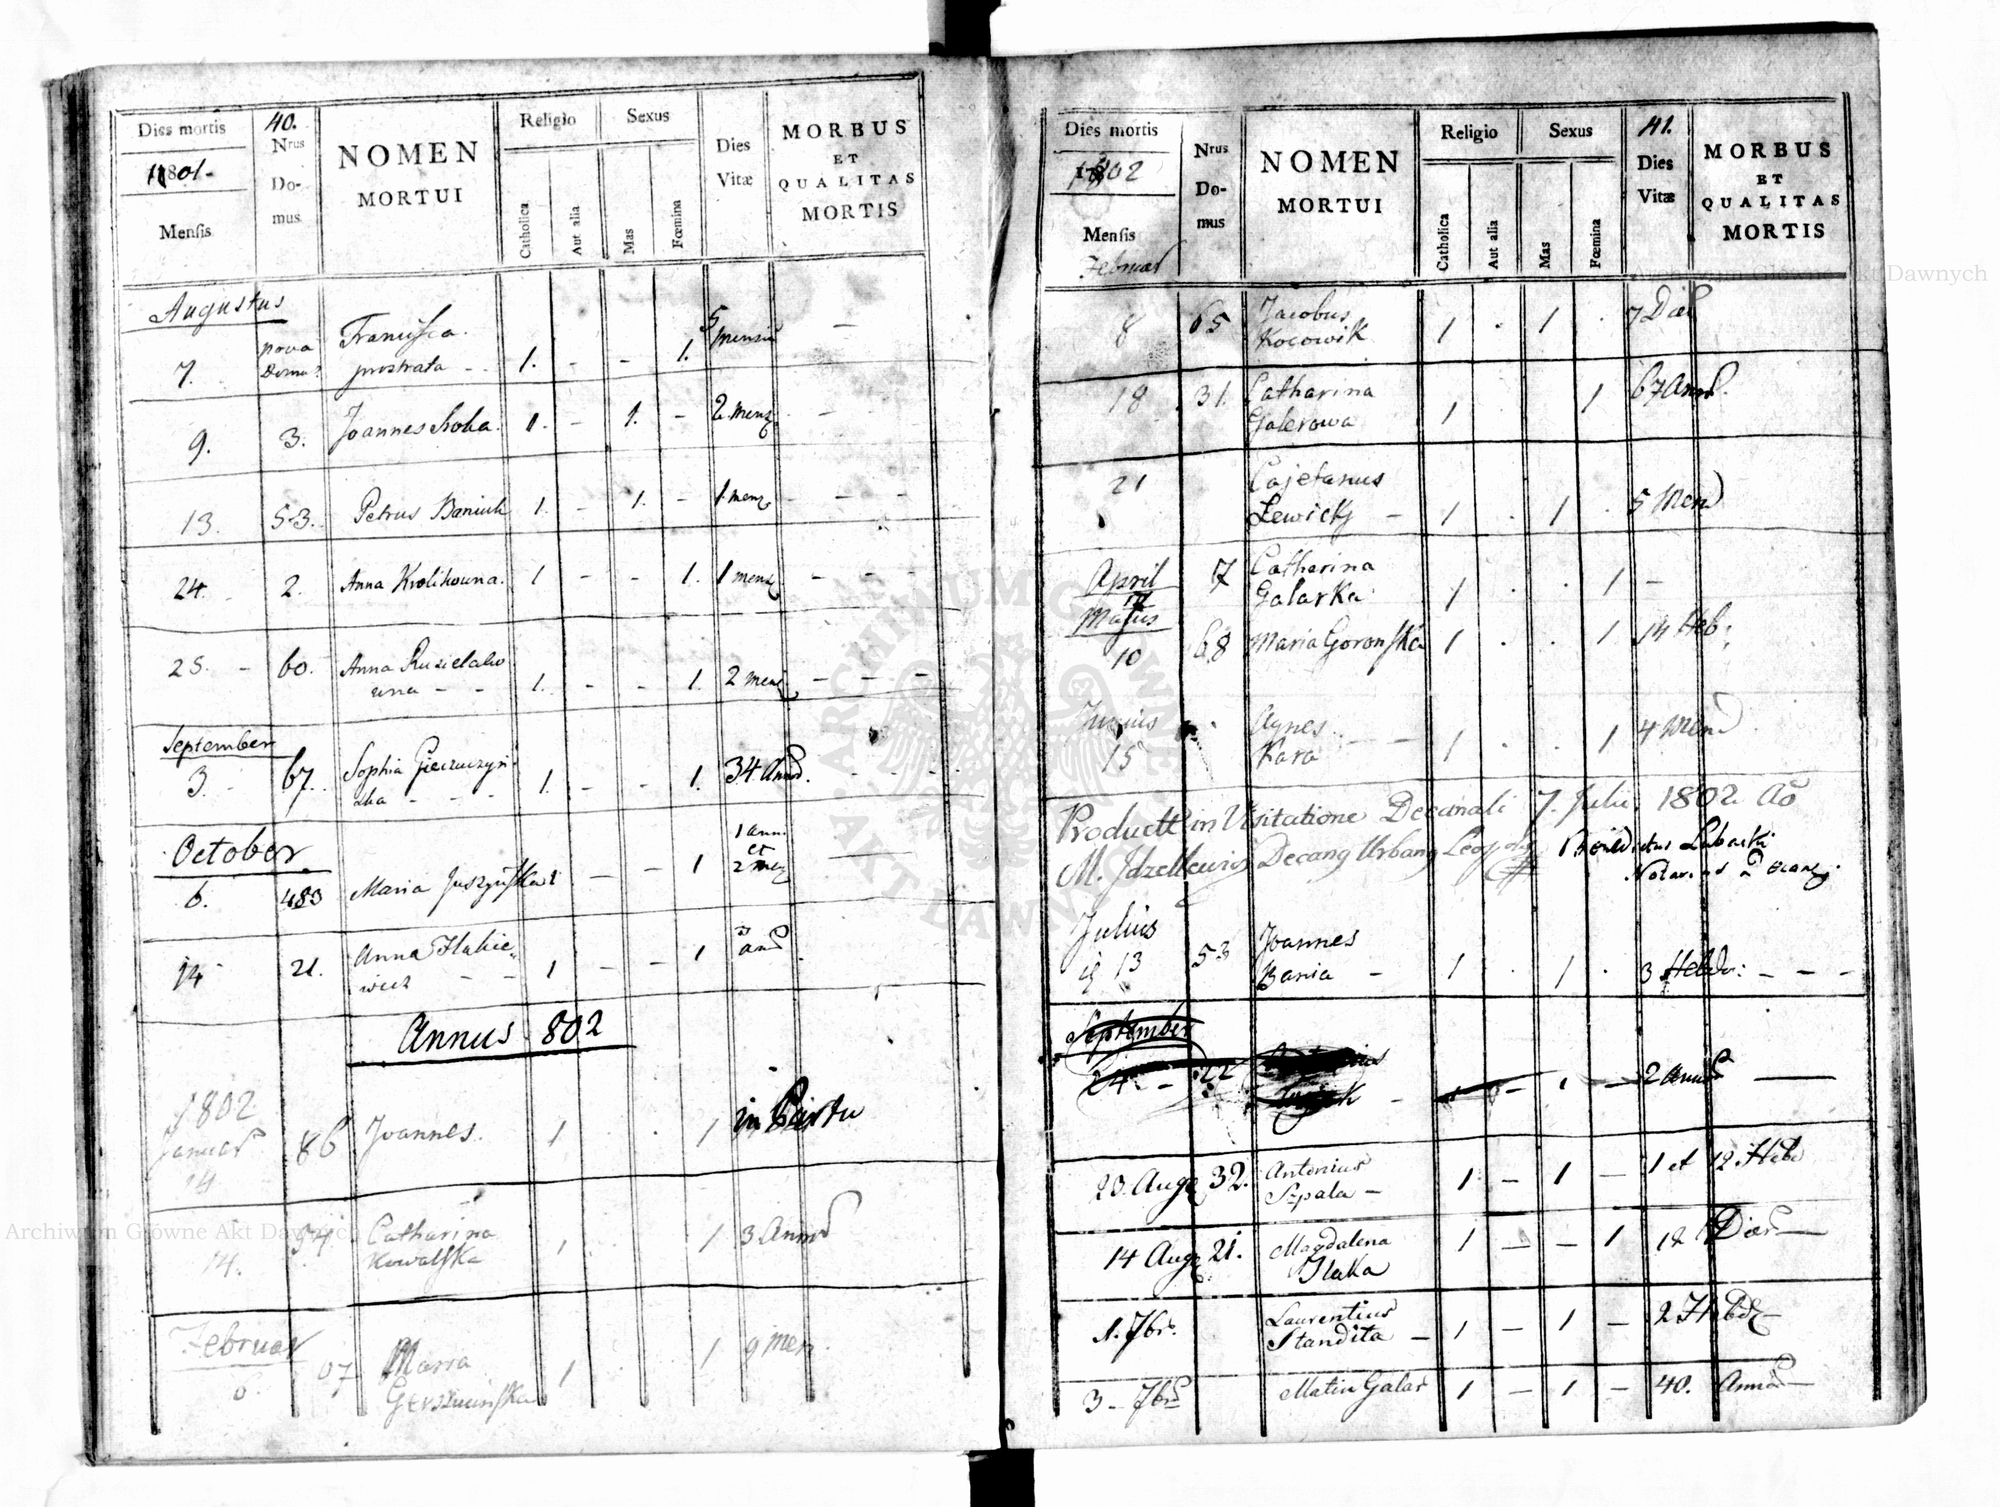 40.
Dies mortis
1801.
Mensis
Nrus
Do-
mus.
NOMEN
MORTUI
Religio
Catholica
Aut alia
Sexus
Mas
Fœmina
Dies
Vitæ
MORBUS
ET
QUALITAS
MORTIS
Augustus
7. nova Francisca 5 mensiu —
domus prostrata - 1. - - 1.
9. 3. Joannes Soha. 1. - 1. - 2 menz. -
13. 53. Petrus Baniuk 1. - 1. - 1. menz - - -
24. 2. Anna Krolikowna. 1 - - 1. 1 menz. - - -
25. - 60. Anna Rusielako
wna - - 1. - - 1. 2 menz - - -
September
3. - 67. Sophia
ska - - - 1. - - 1. 34 Annor. - - - -
October
6. 483 Maria Juszyńska 1 - - 1 1 ann. et 2 menz —
14 21. Anna Hlakie-
wicz - - 1 - - 1 3 and
Annus 802
1802
Januar
14 86 Joannes. 1 . . 1 in Partu
14. 54 Catharina
Kowalska 1 1 3 Annor
Februar
6. 07 Maria 1 1 9 men.
41.
Dies mortis
1802
Mensis
Februar
Nrus
Do-
mus
NOMEN
MORTUI
Religio
Catholica
Aut alia
Sexus
Mas
Fœmina
Dies
Vitæ
MORBUS
ET
QUALITAS
MORTIS
8 65 Jacobus
Kocowik 1 . 1 . 7 Die
18 31. Catharina
Galerowa 1 1 67 Annor.
21 Cajetanus
Lewicky - 1 . 1 . 5 Men
April
17 17 Catharina
Galarka 1 . . 1 -
Majus
10 68 Maria Goronska 1 . . 1 14 Heb:
Junius
15 Agnes
Kara - - 1 . . 1 4 Men
Product in Visitatione Decanali 7. Julii 1802 Ao
M. Decang Urbang Leop Benedictus
Notarius
Julius
13 53 Joannes
Bania - 1 . 1 . 3 Hebdo: - - -
September
24 - 22 1 - 1 - 2 Annor —
20. Aug 32. Antonius
Szpala - 1 - 1 - 1 et 12. Hebd
14 Aug 21. Magdalena
Ilaka 1 - - 1 12 Dier —
1. 7br. Laurentius
Standita - 1 - 1 - 2 Hebd -
3 - 7br Matin Galar 1 - 1 - 40. Annor -
ARCHIWUM GŁÓWNE AKT DAWNYCH
Archiwum Główne Akt Dawnych
Archiwum Główne Akt Dawnych